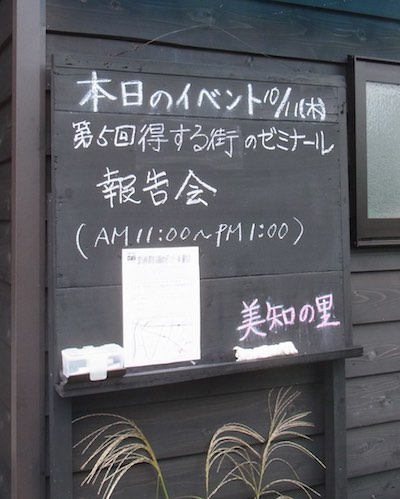 本日のイベント10/11(木)
第5回得する街のゼミナール
報告会
(AM11:00~PM1:00)
美知の里